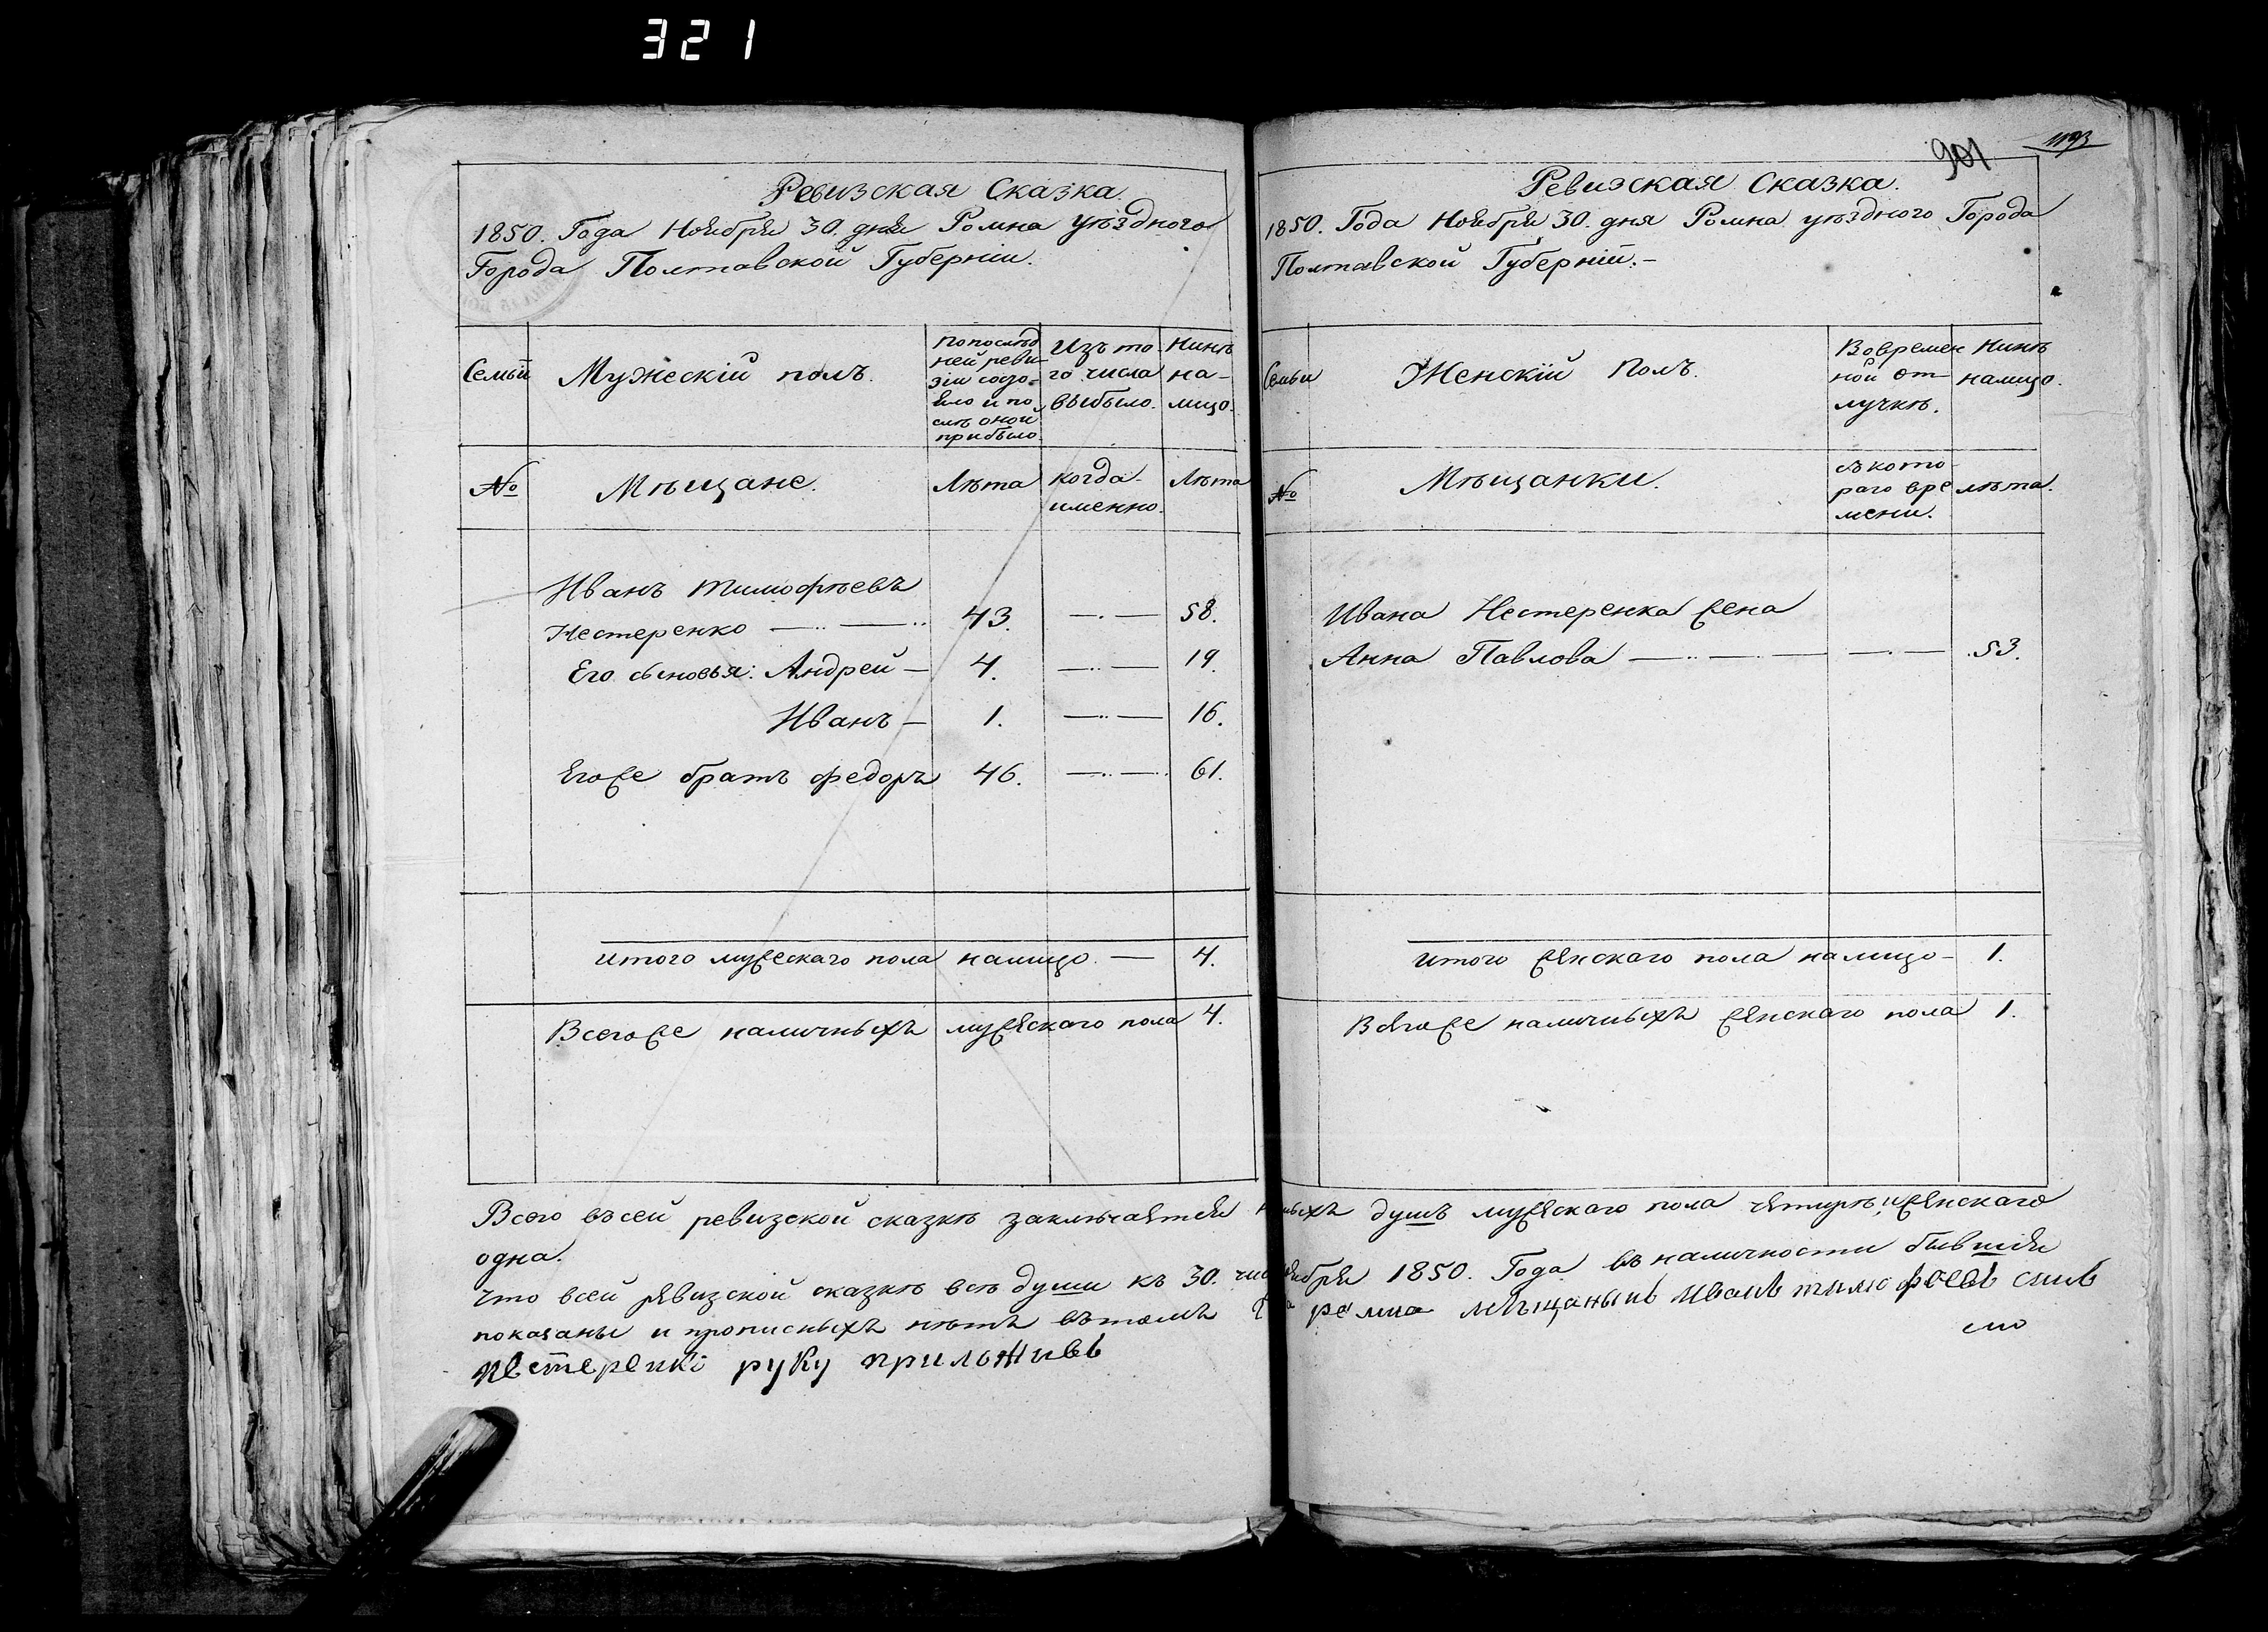 321
901
1193
Ревизская Сказка.
1850. Года Ноября 30. дня Ромна уѣзднаго
Города Полтавской Губерніи.
Семьи
Мужескій полъ.
По послѣд
ней реви-
зіи состо-
яло и по
слѣ оной
прибыло.
Изъ то-
го числа
выбыло.
Нынѣ
на-
лицо.
№
Мѣщане.
Лѣта
когда
именно.
Лѣта
Иванъ Тимофѣевъ
Нестеренко 43. 58.
Его сыновья: Андрей 4. 19.
Иванъ 1. 16.
Егоже братъ Федоръ 46. 61.
Итого мужескаго пола налицо. 4.
Всегоже наличныхъ мужескаго пола 4.
Ревизская Сказка.
1850. Года Ноября 30. дня Ромна уѣзднаго Города
Полтавской Губерній.
Семьи
Женскій Полъ.
Вовремен
ной от-
лучкѣ.
Нынѣ
налицо.
№
Мѣщанки.
съ кото-
раго вре
мени.
лѣта.
Ивана Нестеренка жена
Анна Павлова 53.
Итого женскаго пола налицо 1.
Всегоже наличныхъ женскаго пола 1.
Всего въ сей ревизской сказкѣ заключается ныхъ душъ мужескаго пола четыре, и женскаго
одна.
Что всей ревизской сказкѣ всѣ души къ 30. чис ября 1850. Года въ наличности бывшія
показаны и прописныхъ нѣтъ въ томъ Ромна мѣщанынъ Иванъ тимофѣевъ синъ
Нестеренко руку приложивъ